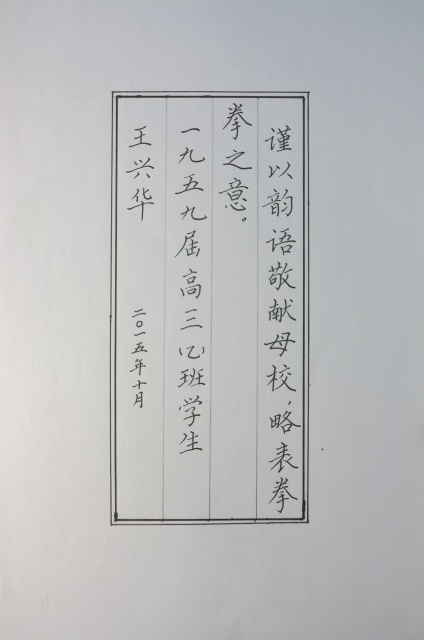 谨以韵语敬献母校，略表拳
拳之意。
一九五九届高三心班学生
王兴华
二〇一五年十月